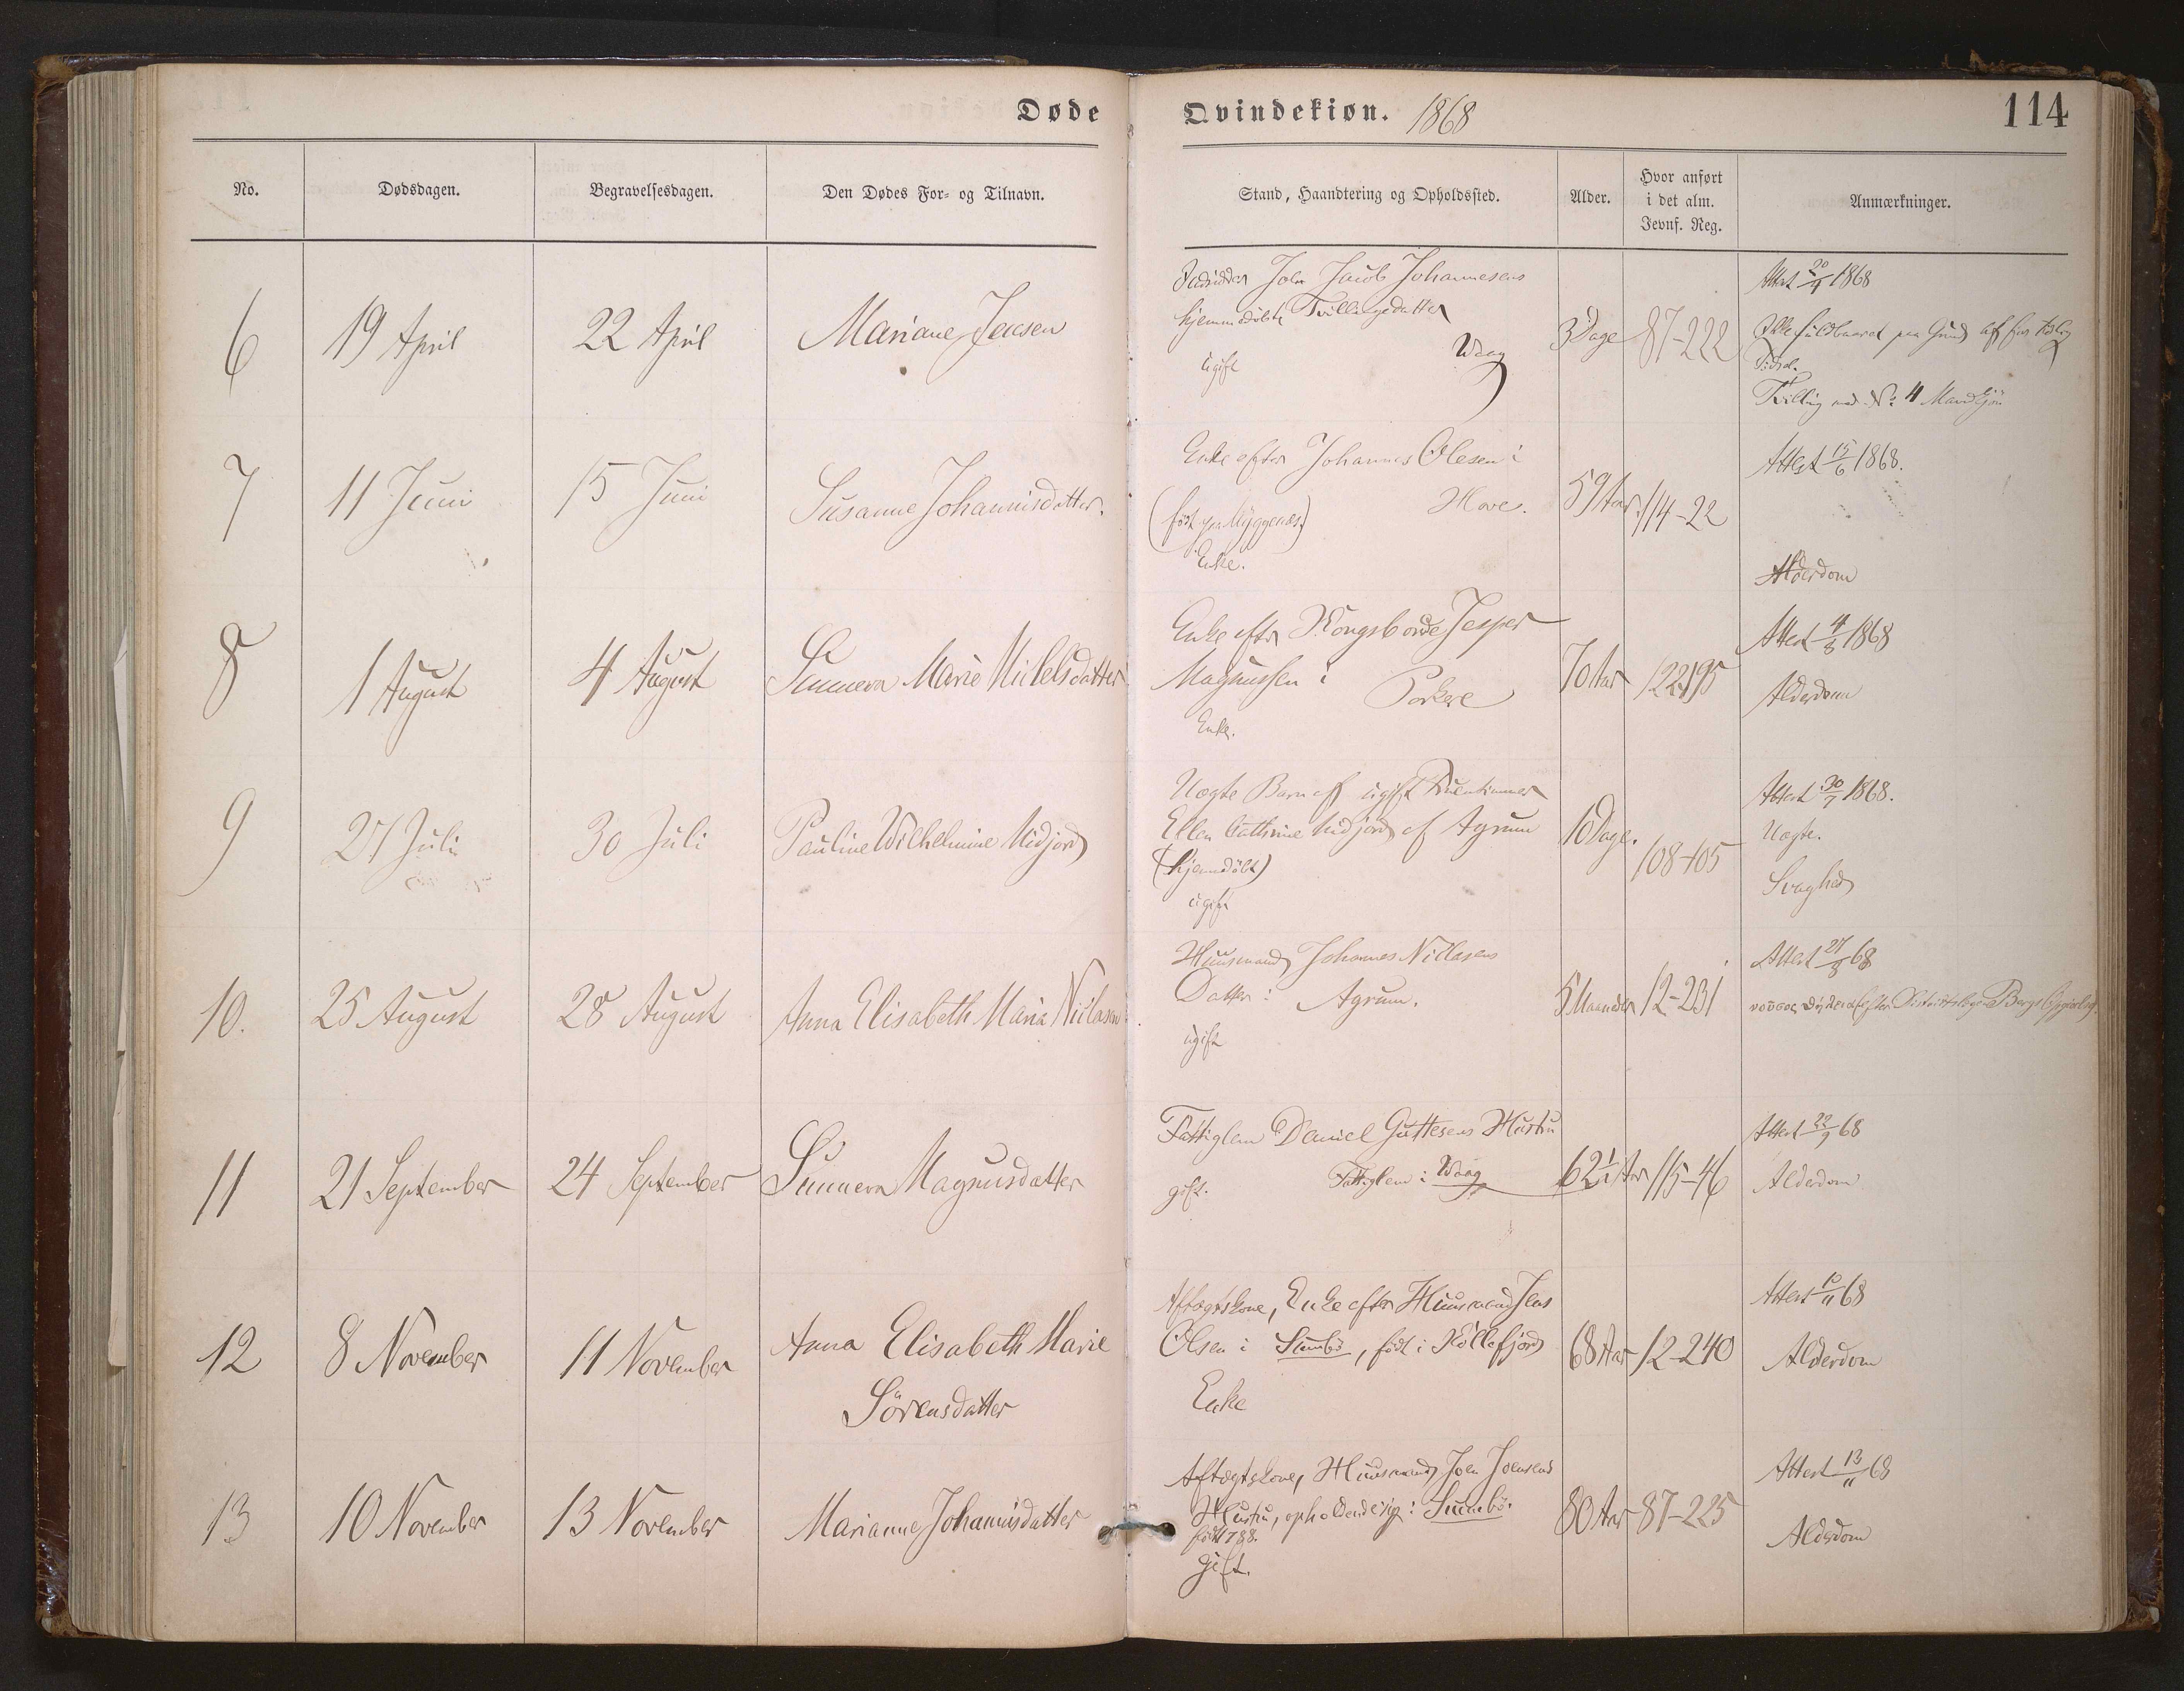 Døde Qvindekiøn. 1868 114
No. Dødsdagen. Begravelsesdagen. Den Dødes For- og Tilnavn. Stand, Haandtering og Opholdssted. Alder. Hvor anført i det alm. Jevnf. Reg. Anmærkninger.
6 19 April 22 April Mariane Jensen
Joen Jacob Johannesens
hjemmedøbte Tvillingedatter
Waag
ugift
3 Dage 87-222
Attest 20/4 1868
Ikke fuldbaaret paa Grund af for tidlig
Fødsel.
Tvilling med No: 4 Mandkjön
7 11 Juni 15 Juni Susanne Johannisdatter.
Enke efter Johannes Olesen i
Hove.
(født paa Myggenæs)
Enke.
59 Aar 114-22
Attest 15/6 1868.
Alderdom
8 1 August 4 August Sunneva Marie Mickelsdatter
Enke efter Kongsbonde Jesper
Magnussen i Porkere
Enke.
70 Aar 122-195
Attest 4/8 1868
Alderdom
9 27 Juli 30 Juli Pauline Wilhelmine Midjord
Uægte Barn af ugift Fruentimmer
Ellen Cathrine Midjord af Agrum
(hjemmedøbt)
ugift
10 Dage. 108-105
Attest 30/7 1868.
Uægte.
Svaghed
10. 25 August 28 August Anna Elisabeth Maria Niclasen
Huusmand Johannes Niclasens
Datter i Agrum.
ugift
5 Maaneder 12-231
Attest 27/8 68
νουσος efter Districtslæge Bergs Opgivelse
11 21 September 24 September Sunneva Magnusdatter
Fattiglem Daniel Guttesens Hustru
Fattiglem i Waag
gift.
62½ Aar 115-46
Attest 22/9 68
Alderdom
12 8 November 11 November Anna Elisabeth Marie
Sörensdatter
Aftægtskone, Enke efter Huusmand Jens
Olsen i Sumbö, født i Kollefjord
Enke
68 Aar 12-240
Attest 10/11 68
Alderdom
13 10 November 13 November Marianne Johannisdatter
Aftægtskone, Huusmand Joen Joensens
Hustru, opholdende sig i Sumbö.
født 1788.
gift.
80 Aar 87-225
Attest 13/11 68
Alderdom